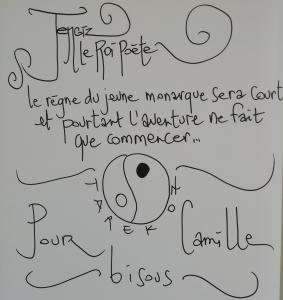 Tengiz
le Roi Poète
le règne du jeune monarque sera court
et pourtant l'aventure ne fait
que commencer...
Pour Camille
bisous